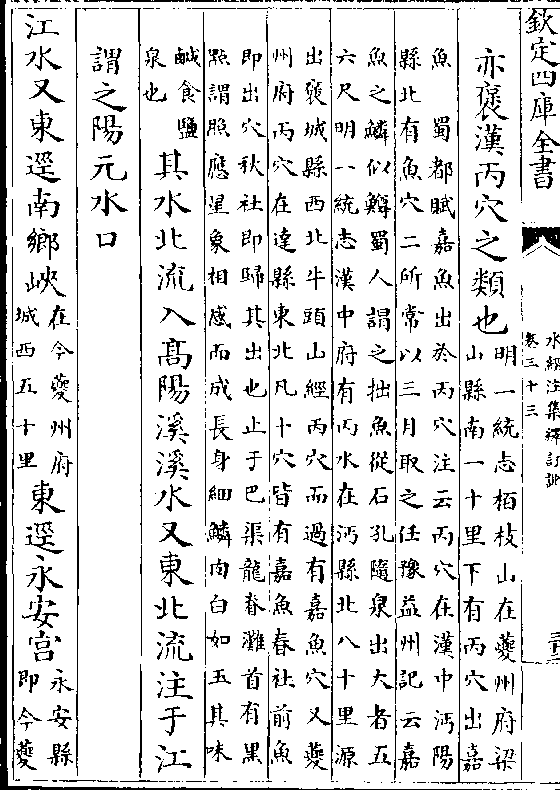 欽定四庫全書
水經注集釋訂訛
卷三十三
亦褒漢丙穴之類也
明一統志栢枝山在夔州府梁
山縣南一十里下有丙穴出嘉
魚 蜀都賦嘉魚出於丙穴注云丙穴在漢中沔陽
縣北有魚穴二所常以三月取之任豫益州記云嘉
魚之鱗似鱒蜀人謂之拙魚從石孔隨泉出大者五
六尺明一統志漢中府有丙水在沔縣北八十里源
出褒城縣西北牛頭山經丙穴而過有嘉魚穴又夔
州府丙穴在達縣東北凡十穴皆有嘉魚春社前魚
即出穴秋社即歸其出也止于巴渠龍脊灘首有黑
㸃謂照應星象相感而成長身細鱗肉白如玉其味
鹹食鹽
泉也
其水北流入髙陽溪溪水又東北流注于江
謂之陽元水口
江水又東逕南鄉峽
在今夔州府
城西五十里
東逕永安宫
永安縣
即今夔